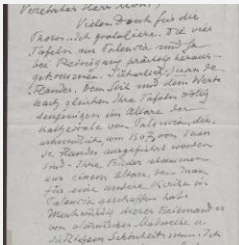 Verehrter Herr
Vielen Dank für die
Photos. Ich gratuliere. Die vier
Tafeln aus Palencia sind ja
bei Reinigung prächtig heraus-
gekommen. Sicherlich Juan de
Flandes. Dem Stil und dem Werte
nach gleichen Ihre Tafeln völlig
denjenigen im Altare der
Kathedrale von Palencia, die
um 1507 von Juan
de Flandes ausgeführt worden
sind. Ihre Bilder stammen
aus einem Altare, den Juan
für eine andere Kirche in
Palencia geschaffen hat.
Merkwürdig dieser Niemand er
von Malweise u.
Schönheitssinn. Ich